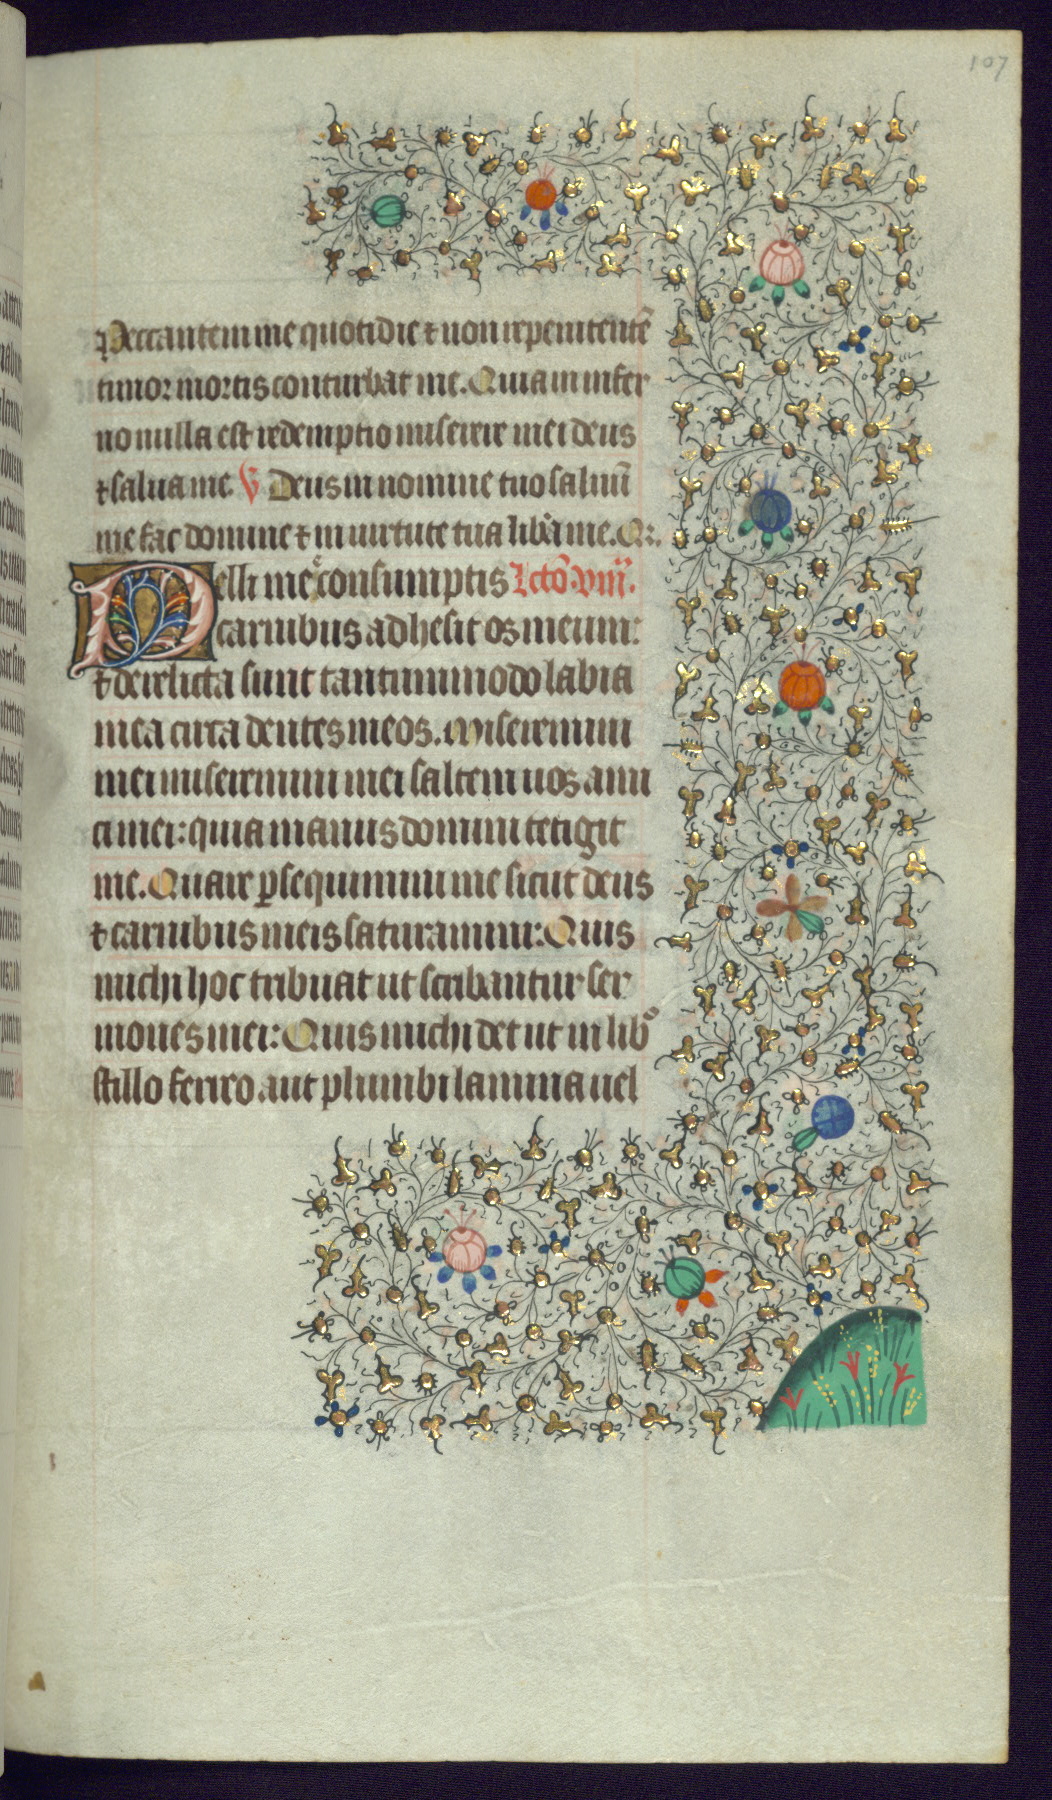 107
Peccantem me quotidie ⁊ non rͤpenitentē
timor mortis conturbat me. Quia in infer
no nulla est redemptio miserere mei deus
⁊ salua me. V̄ Deus in nomine tuo saluū
me fac domine ⁊ in uirtute tua libͣa me. Q:.
Pelli me consumptis Lctō. viij.
carnibus adhesit os meum:
⁊ derelicta sunt tantummodo labia
mea circa dentes meos. Miseremini
mei miseremini mei saltem uos ami
ci mei: quia manus domini tetigit
me. Quare ꝑsequimini me sicut deus
⁊ carnibus meis saturamini: Quis
michi hoc tribuat ut scribantur ser
mones mei: Quis michi det ut in libͦ
stillo ferreo. aut plumbi lamina uel